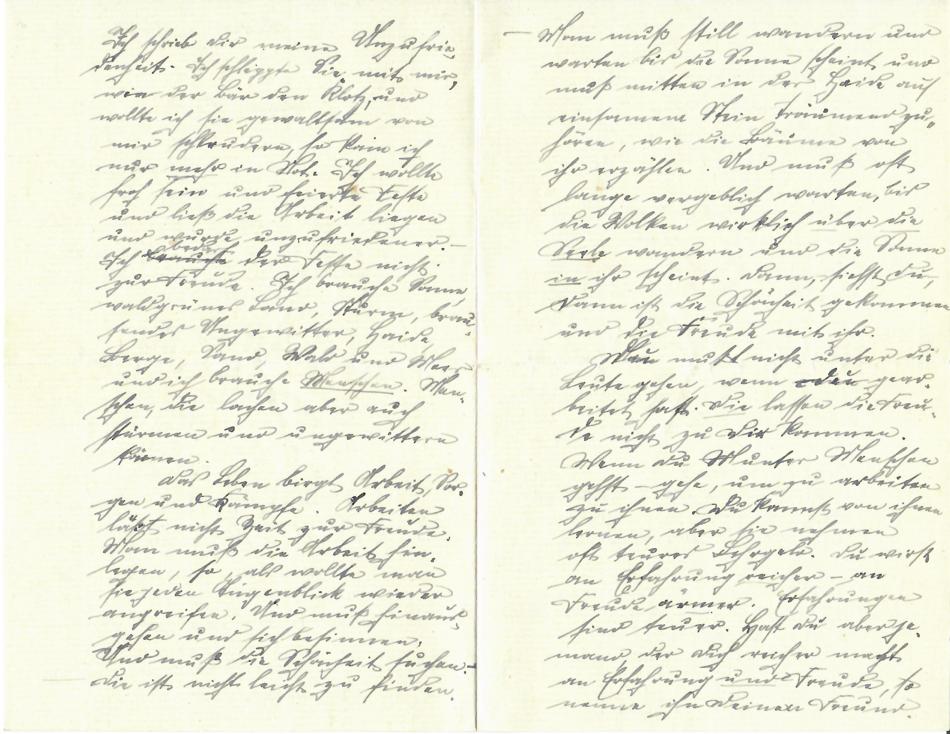 Ich schrieb dir meine Unzufrie-
denheit. Ich schleppte Sie mit mir,
wie der Bär den Klotz, und
wollte ich sie gewaltsam von
mir schleudern, so kam ich
nur mehr in Not. Ich wollte
froh sein und feierte Feste
und ließ die Arbeit liegen
und wurde unzufriedener. –
Ich bedarf der Feste nicht
zur Freude. Ich brauche Sonne,
waldgrünes Land, Sturm, brau-
sendes Ungewitter, Haide,
Berge, Sand, Wald und Meer
und ich brauche Menschen. Men-
schen, die lachen aber auch
stürmen und ungewittern
können.
Das Leben birgt Arbeit, Sor-
gen und Kämpfe. Arbeiten
läßt nicht Zeit zur Freude.
Man muß die Arbeit hin-
legen, so, als wollte man
sie jeden Augenblick wieder
angreifen. Und muß hinaus-
gehen und sich besinnen.
Und muß die Schönheit suchen –
die ist nicht leicht zu finden.
– Man muß still wandern und
warten bis die Sonne scheint und
muß mitten in der Haide auf
einsamem Stein träumend zu-
hören, wie die Bäume von
ihr erzählen. Und muß oft
lange vergeblich warten, bis
die Wolken wirklich über die
Seele wandern und die Sonne
in ihr scheint. Dann, siehst du,
dann ist die Schönheit gekommen
und die Freude mit ihr.
Du mußt nicht unter die
Leute gehen, wenn du gear-
beitet hast. Die lassen die Freu-
de nicht zu dir kommen.
Wenn du unter Menschen
gehst – gehe, um zu arbeiten
zu ihnen. Du kannst von ihnen
lernen, aber sie nehmen
oft teures Lehrgeld. Du wirst
an Erfahrung reicher – an
Freude ärmer. Erfahrungen
sind teuer. Hast du aber je-
mand, der dich reicher macht
an Erfahrung und Freude, so
nenne ihn deinen Freund.